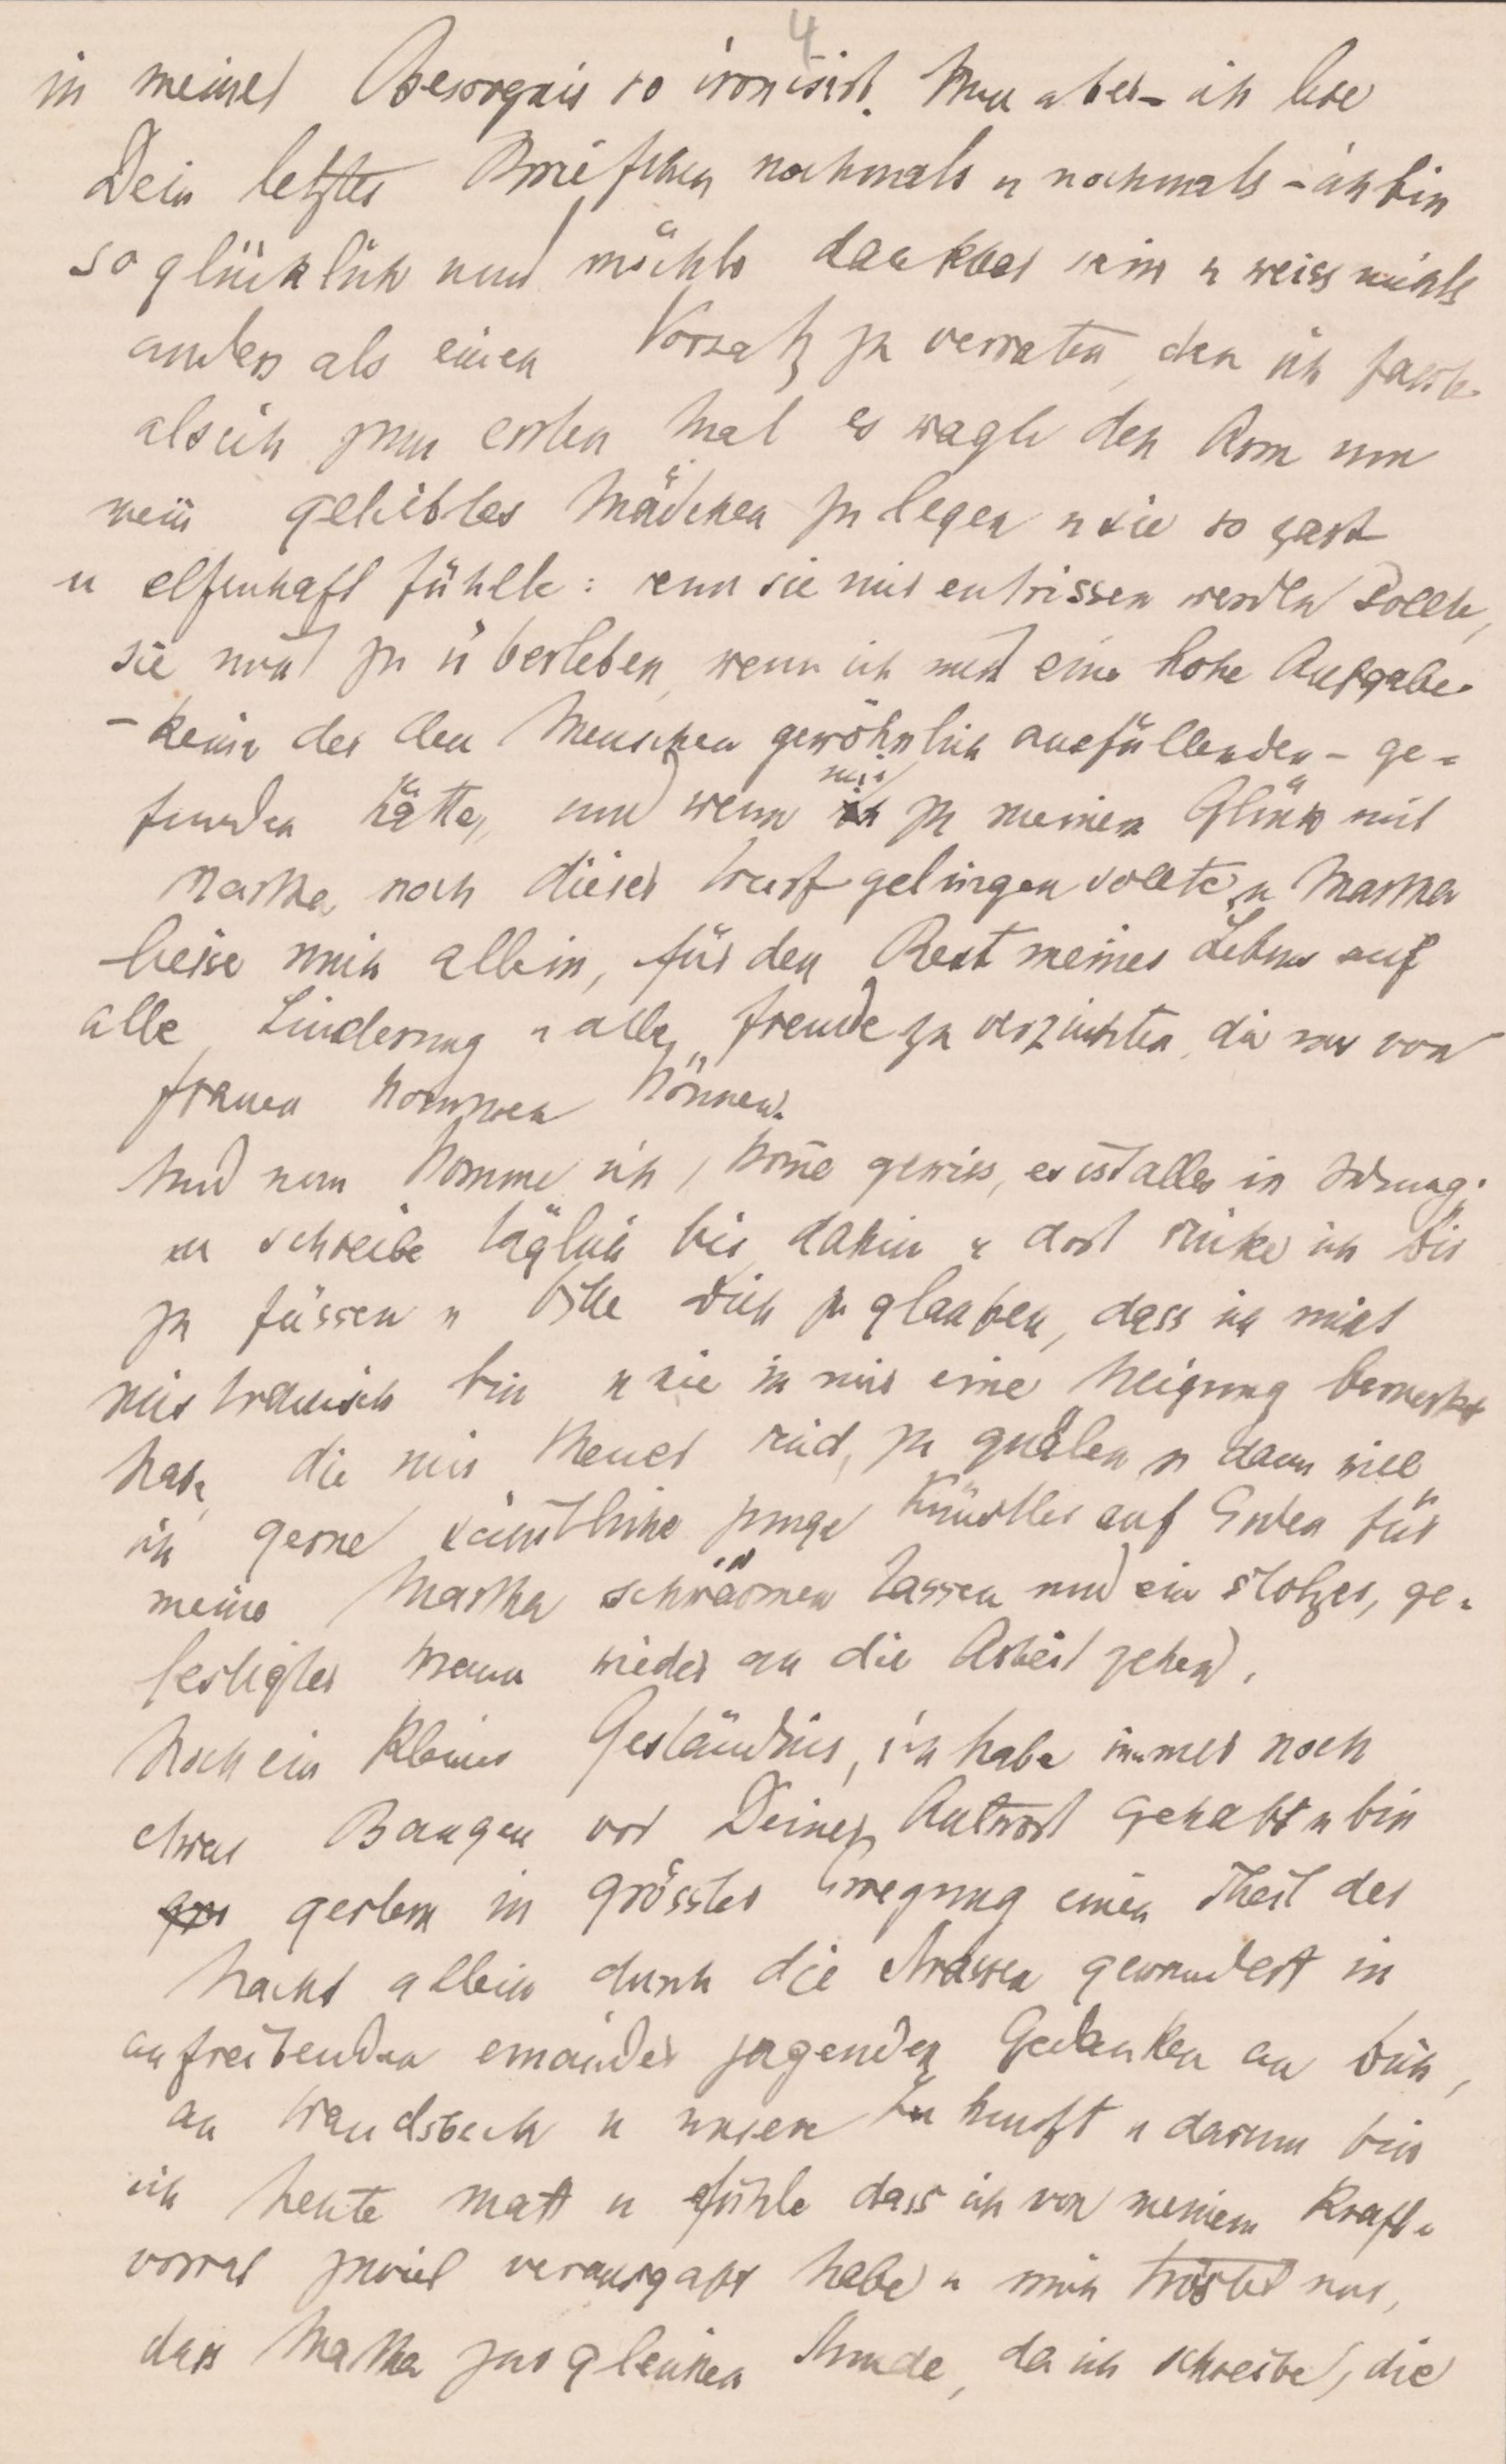 4
in meiner Besorgnis so ironisirt. Nun aber – ich lese
Dein letztes Briefchen nochmals u nochmals – ich bin
so glücklich und möchte dankbar sein u weiss nichts
anders als einen Vorsatz zu verraten, den ich fasste
als ich zum ersten Mal es wagte den Arm um
mein geliebtes Mädchen zu legen u sie so zart
u elfenhaft fühlte: wenn sie mir entrissen werden sollte,
sie nicht zu überleben, wenn ich nicht eine hohe Aufgabe
– keine der den Menschen gewöhnlich ausfüllenden – ge-
funden hätte, und wenn mir zu meinem Glück mit
Martha noch dieser Wurf gelingen sollte, u Martha
liesse mich allein, für den Rest meines Lebens auf
alle Linderung u alle Freude zu verzichten, die nur von
Frauen kommen können.
Und nun komme ich, komme gewiss, es ist alles in Ordnung,
u schreibe täglich bis dahin u dort sinke ich Dir
zu Füssen u bitte Dich zu glauben, dass ich nicht
mistrauisch bin u nie in mir eine Neigung bemerkt
habe, die mir theuer sind, zu quälen u dann will
ich gerne sämtliche junge Künstler auf Erden für
meine Martha schwärmen lassen und ein stolzer, ge-
festigter Mann wieder an die Arbeit gehen.
Noch ein kleines Geständnis, ich habe immer noch
etwas Bangen vor Deiner Antwort gehabt u bin
gestern in grösster Erregung einen Theil der
Nacht allein durch die Strassen gewandert in
aufreibenden einander jagenden Gedanken an Dich,
an Wandsbeck u unsere Zukunft u darum bin
ich heute matt u fühle dass ich von meinem Kraft-
vorrat zuviel verausgabt habe u mich tröstet nur,
dass Martha zur gleichen Stunde, da ich schreibe, die